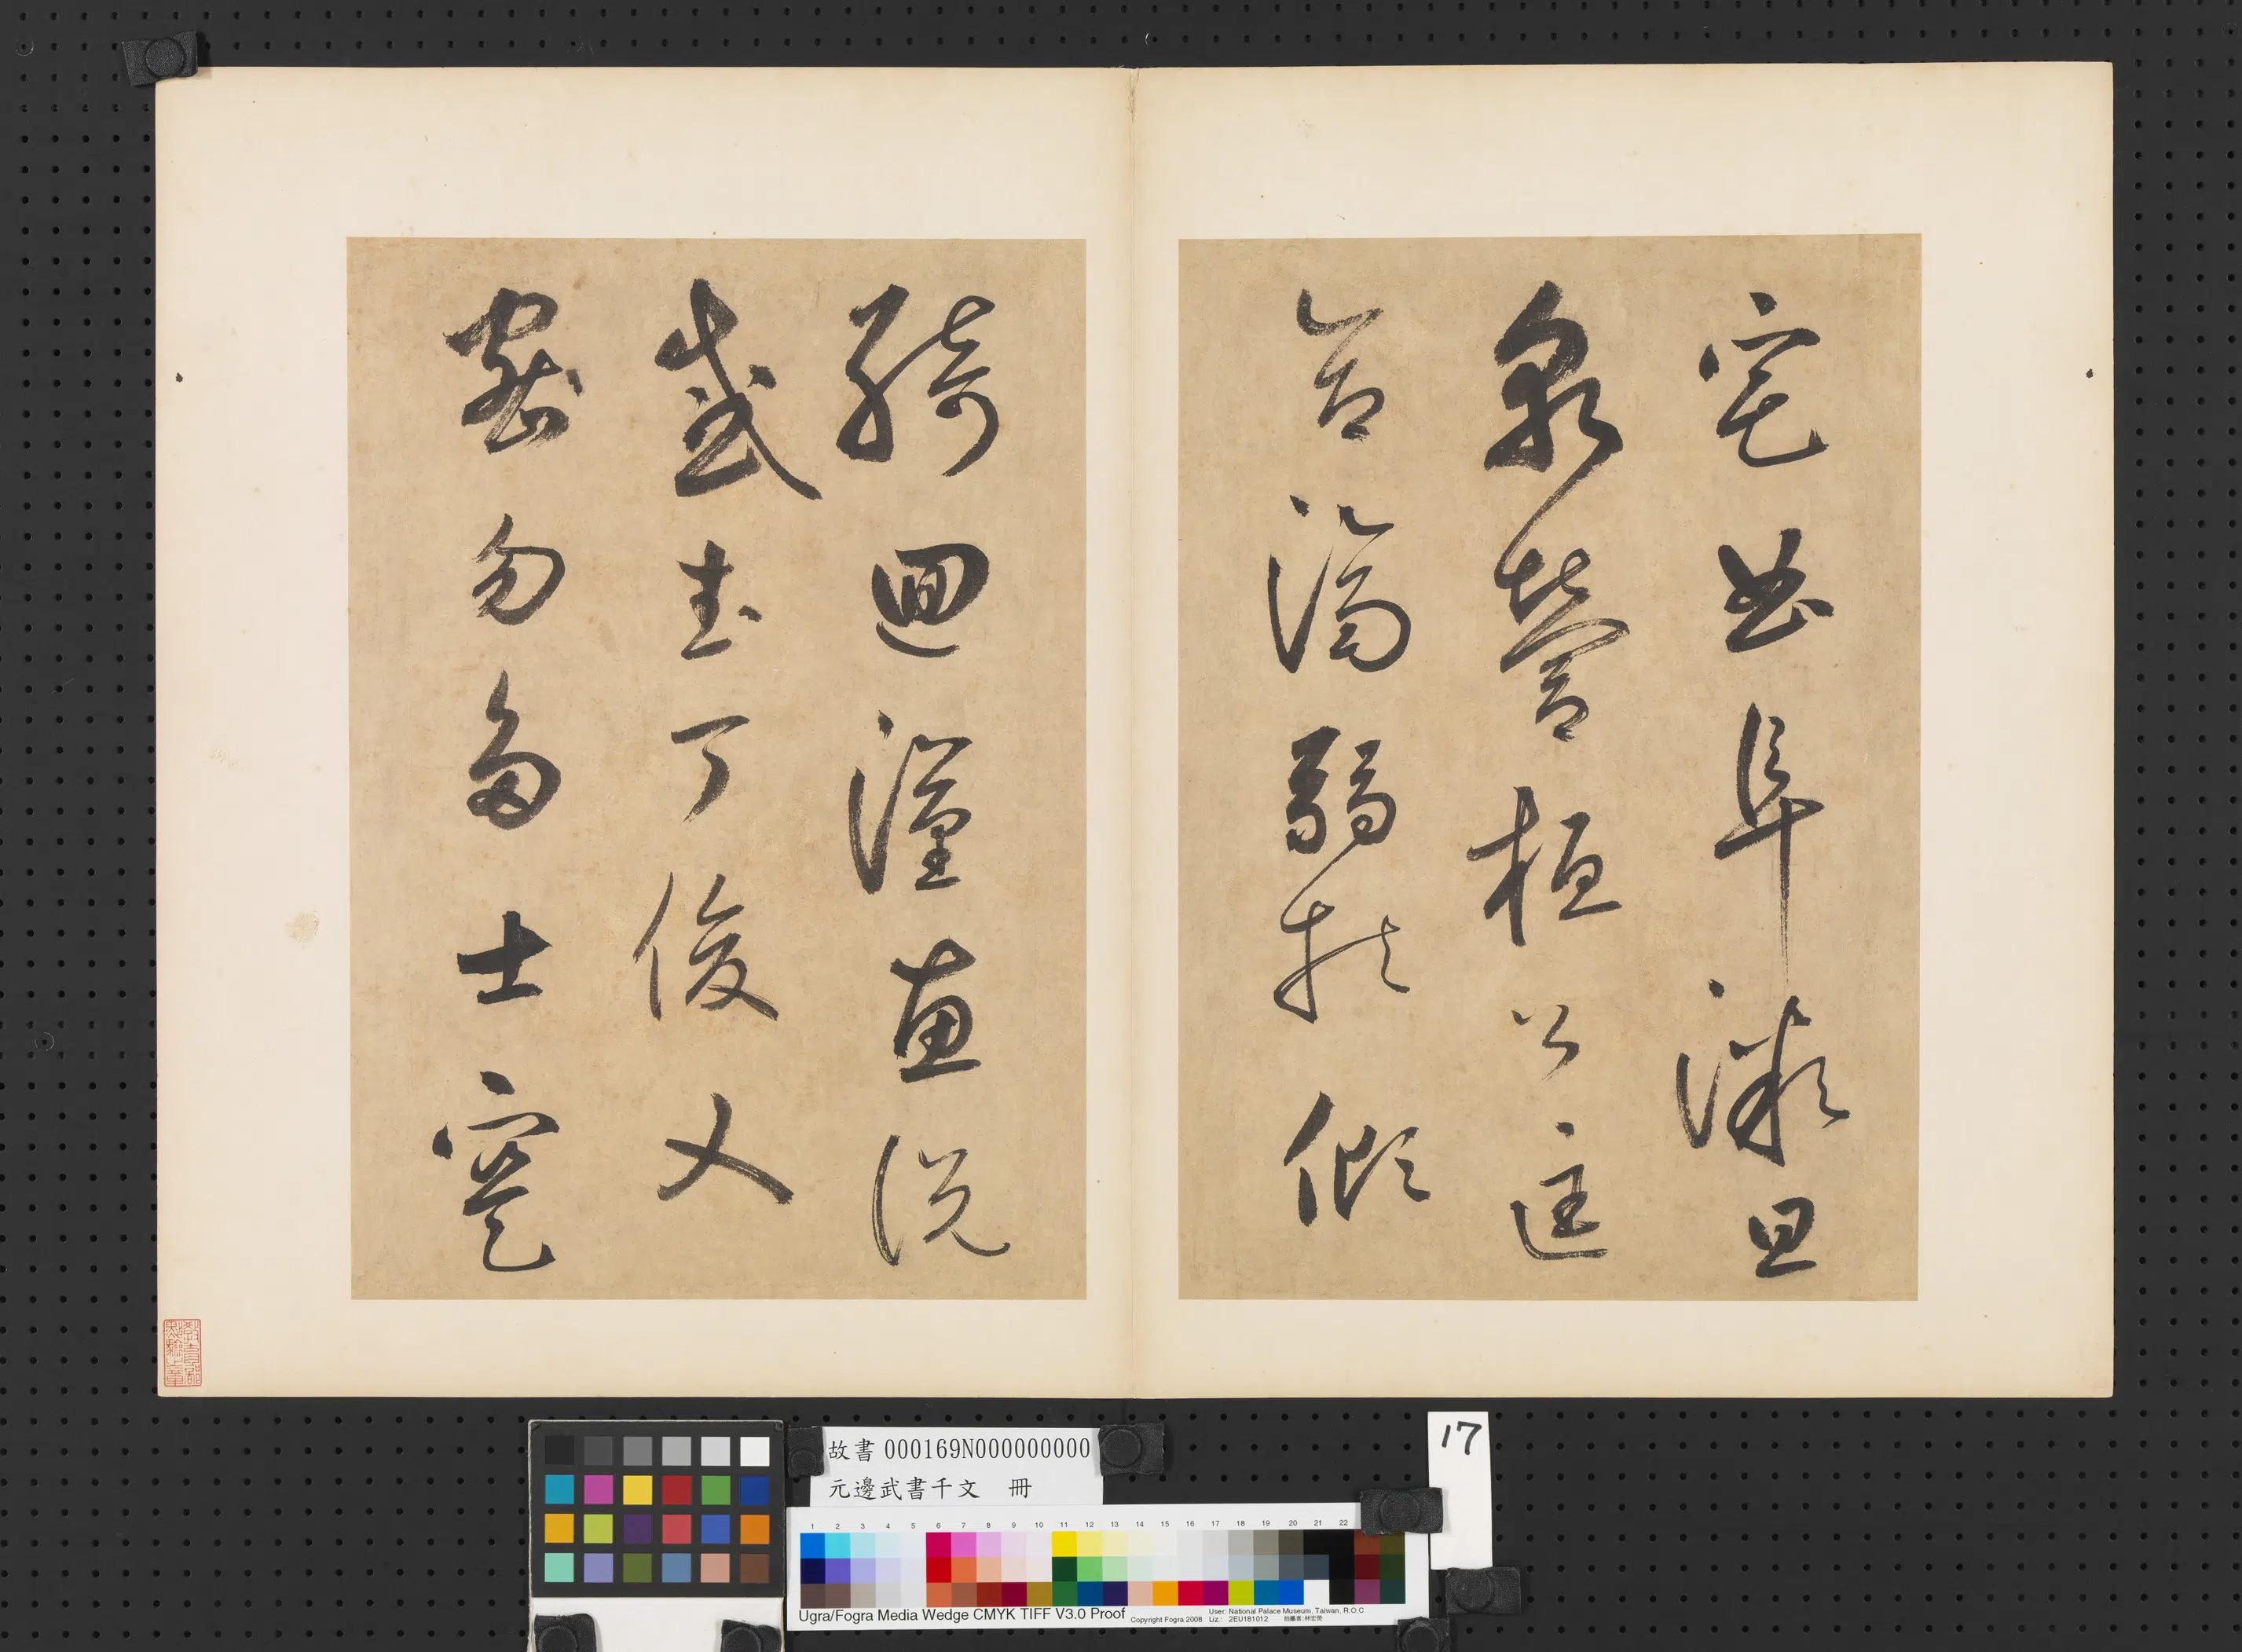 宅曲阜微旦
孰營桓公匡
合濟弱扶傾
綺迴漢惠說
感武丁俊乂
密勿多士寔
教育部點驗之章
故書 000169N000000000
元邊武書千文 冊
17
1 2 3 4 5 6 7 8 9 10 11 12 13 14 15 16 17 18 19 20 21 22
Ugra/Fogra Media Wedge CMYK TIFF V3.0 Proof
Copyright Fogra 2008
User: National Palace Museum, Taiwan, R.O.C
Liz.: 2EU181012